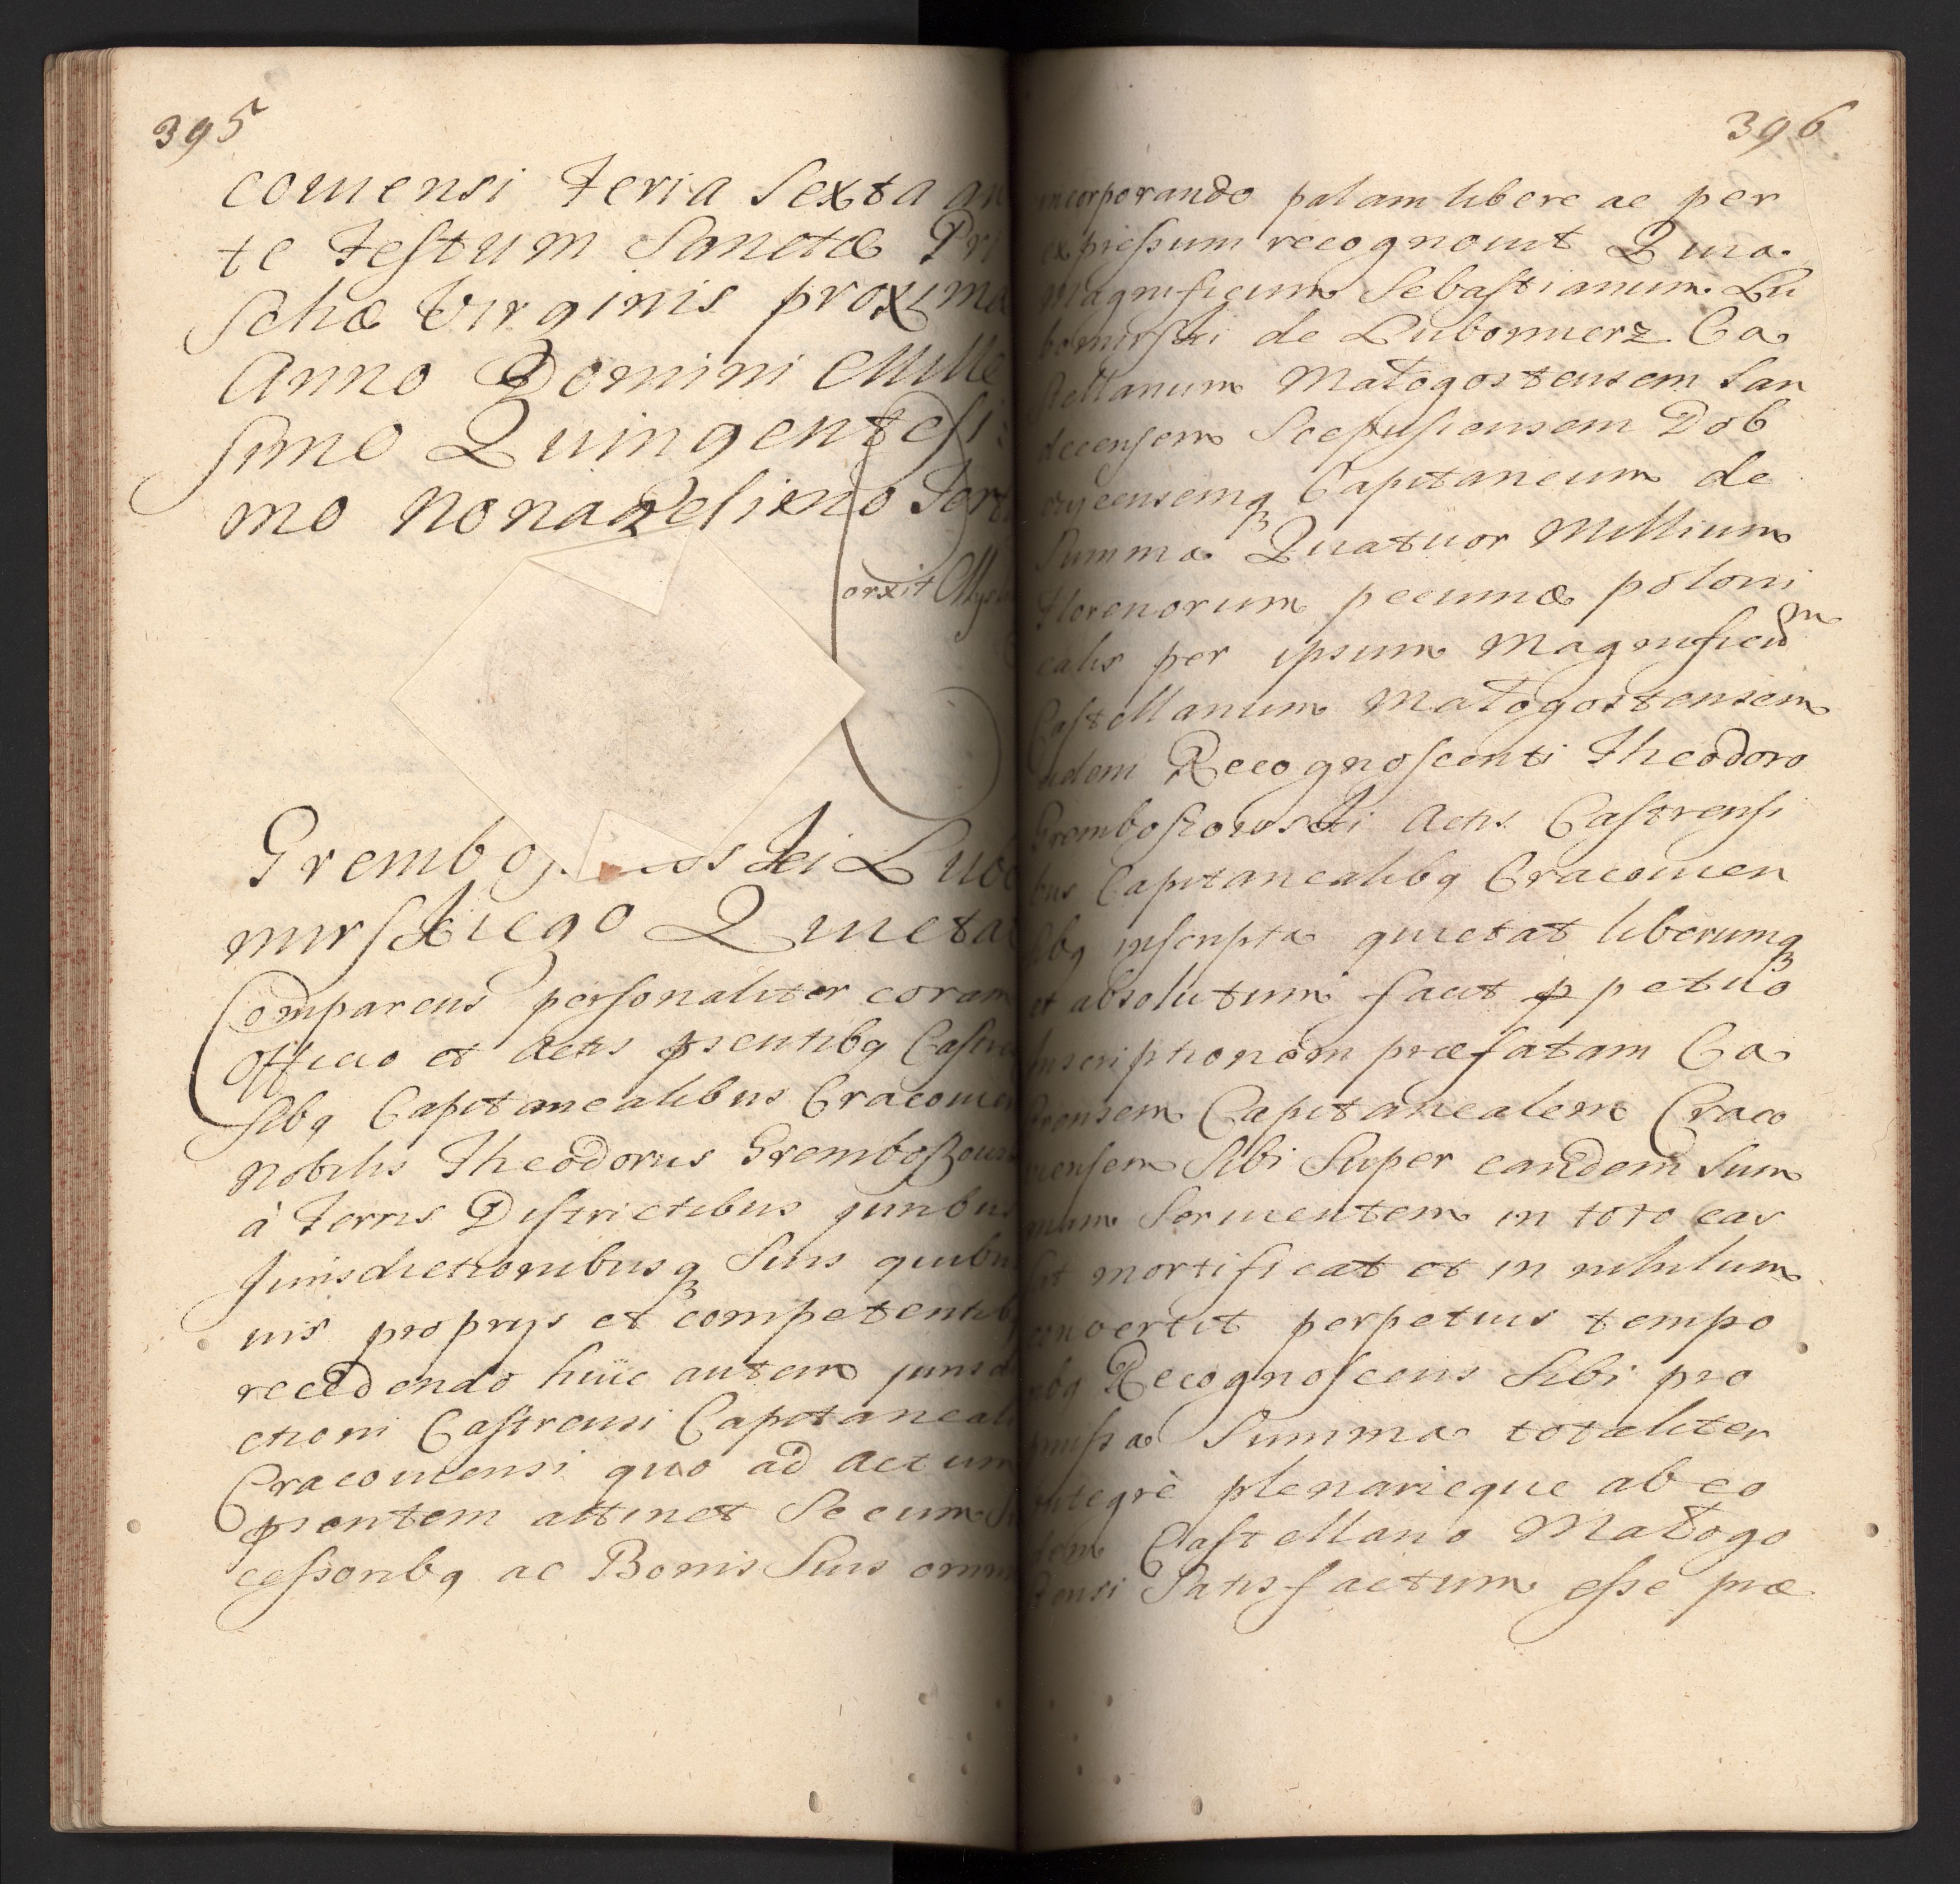 395
comensi Feria Sexta an
te Festum Sanctæ Pri
schæ Virginis proxima
Anno Domini Mille
simo Quingentesi:
mo Nonagesimo Terti
orxit
Grembos wskei Lubo
mirskiego Quieta
Comparens personaliter coram
Officio et Actis pñsentibq Castre
sibq Capitanealibus Cracovien
Nobilis Theodorus Gremboszows
à Terris Districtibus juribus
Jurisdictionibusq Suis quibus
uis proprys et competentib
recedendo huic autem jurisdi
ctioni Castrensi Capitaneali
Cracouiensi quo ad Actum
pñsentem attinet Se cum Su
cessoribq ac Bonis Suis omni
396
incorporando palam libere ac per
expressum recognouit Quia
Magnificum Sebastianum Lu
bomirski de Lubomierz Ca
stellanum Małogostensem San
decensem Scepusiensem Dob
czycensemq Capitaneum de
Summa Quatuor Millium
Florenorum pecuniæ poloni
calis per ipsum Magnificum
Castellanum Małogostensem
eidem Recognoscenti Theodoro
Gremboszowski Actis Castrensi
bus Capitanealibq Cracouien
sibq inscripta quietat liberumq
et absolutum facit ppetuo
Inscriptionem præfatam Ca
strensem Capitanealem Craco
uiensem Sibi Super eandem Sum
mam Seruientem in toto cas
sat mortificat et in nihilum
convertit perpetuis tempo
ribq Recognoscens Sibi pro
missa Summa totaliter
integrè plenarieque ab eo
dem Castellano Małogo
stensi Satisfactum esse præ